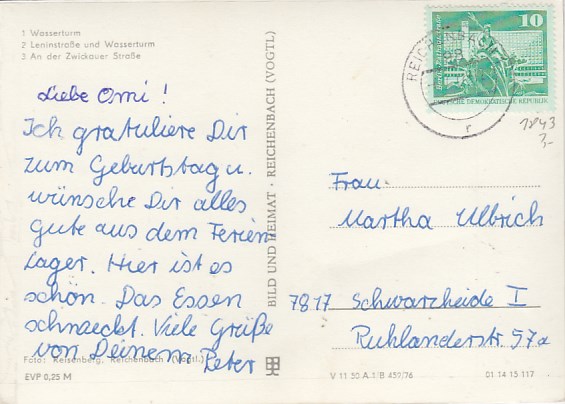 1 Wasserturm
2 Leninstraße und Wasserturm
3 An der Zwickauer Straße
Liebe Omi!
Ich gratuliere Dir
zum Geburtstag u.
wünsche Dir alles
gute aus dem Ferien
Lager. Hier ist es
schön. Das Essen
schmeckt. Viele Grüße
von Deinem Peter
Foto: Reisenberg, Reichenbach (Vogtl.)
EVP 0,25 M
BILD UND HEIMAT · REICHENBACH (VOGTL)
10
DEUTSCHE DEMOKRATISCHE REPUBLIK
REICHENBACH
1843
3,-
Frau
Martha Ulbrich
7817 Schwarzheide I
Ruhlanderstr. 57a
V 11 50 A 1/B 459/76
01 14 15 117